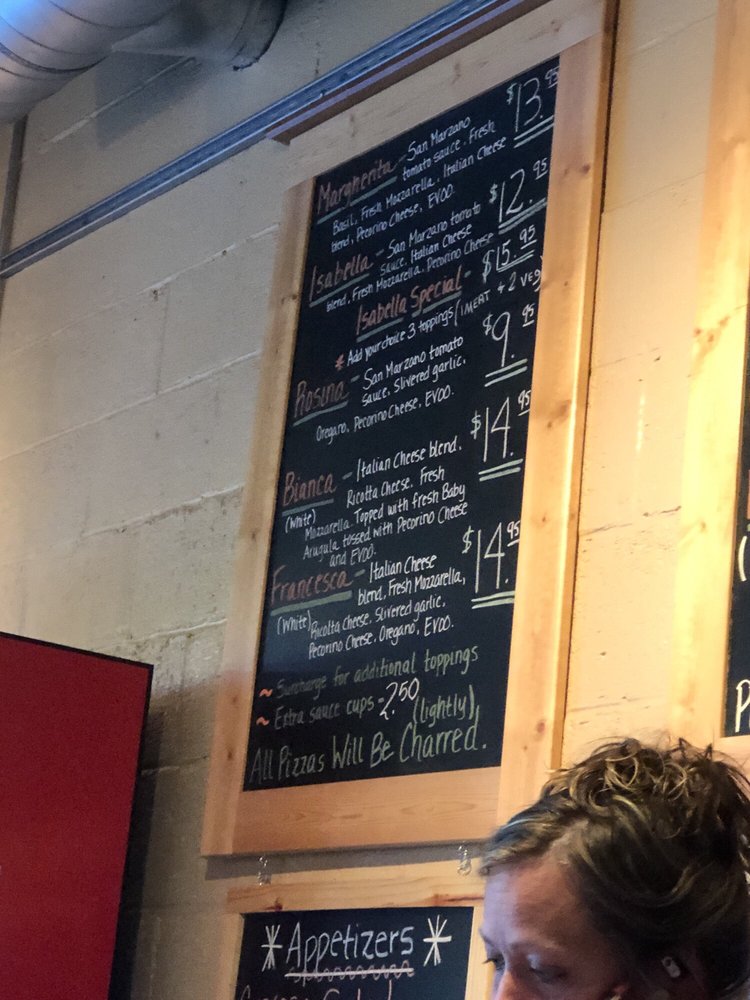 Margherita - San Marzano $13.95
tomato sauce. Fresh
Basil, Fresh Mozzarella, Italian Cheese
blend, Pecorino Cheese, EVOO.
Isabella - San Marzano tomato $12.95
sauce, Italian Cheese
blend, Fresh Mozzarella, Pecorino Cheese
Isabella Special - $15.95
* Add your choice 3 toppings (1 MEAT + 2 VEG
Rosina - San Marzano tomato $9.95
sauce, Slivered garlic,
Oregano, Pecorino Cheese, EVOO.
Bianca - Italian Cheese blend, $14.95
(White) Ricotta Cheese, Fresh
Mozzarella. Topped with fresh Baby
Arugula tossed with Pecorino Cheese
and EVOO.
Francesca - Italian Cheese $14.95
blend, Fresh Mozzarella,
(White) Ricotta Cheese, Slivered garlic,
Pecorino Cheese, Oregano, EVOO.
~ Surcharge for additional toppings
~ Extra sauce cups - 2.50
(lightly)
All Pizzas Will Be Charred.
* Appetizers *